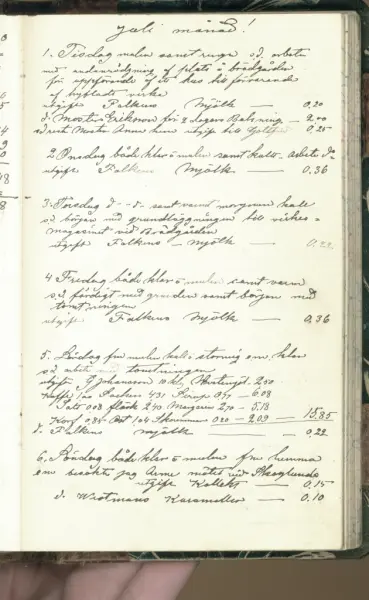 Juli månad!
1. Tisdag mulen samt ruge s.d. arbete
med undanrödgning af plats å brädgården
för uppförande af ett hus för förvarande
af hyfladt virke
utgift Falkens Mjölk — 0,20
d. Moster Erikson för 8 dagars Bakning — 2,00
0,25
2 Onsdag både klar o mulen samt kallt arbete do
utgift Falkens Mjölk — 0,36
3. Torsdag d - d - samt varmt morgonen kall
s.d. början med grundläggningen till virkes-
magasinet vid Brädgården
utgift Falkens — Mjölk — 0,22
4 Fredag både klar o mulen samt varm
s.d. färdigt med grunden samt början med
timringen
utgift Falkens Mjölk — 0,36
5. Lördag fm mulen kall o stormig em. klar
s.d. arbete med tomtningen
utgifter G Johansson 10 kg 2,50
Kaffe 1,00 Socker 4,31 Sirup 0,77 — 6,08
Salt 0,08 fläsk 2,40 Margarin 2,70 — 5,18
Korf 0,85 Ost 1,04 0,20 — 2,09 — 15,85
d. Falkens mjölk — 0,22
6. Söndag både klar o mulen fm hemma
em besökte jag Arne mötet vid Skoglunds
utgift Kollekt — 0,15
d. Westmans Karameller — 0,10